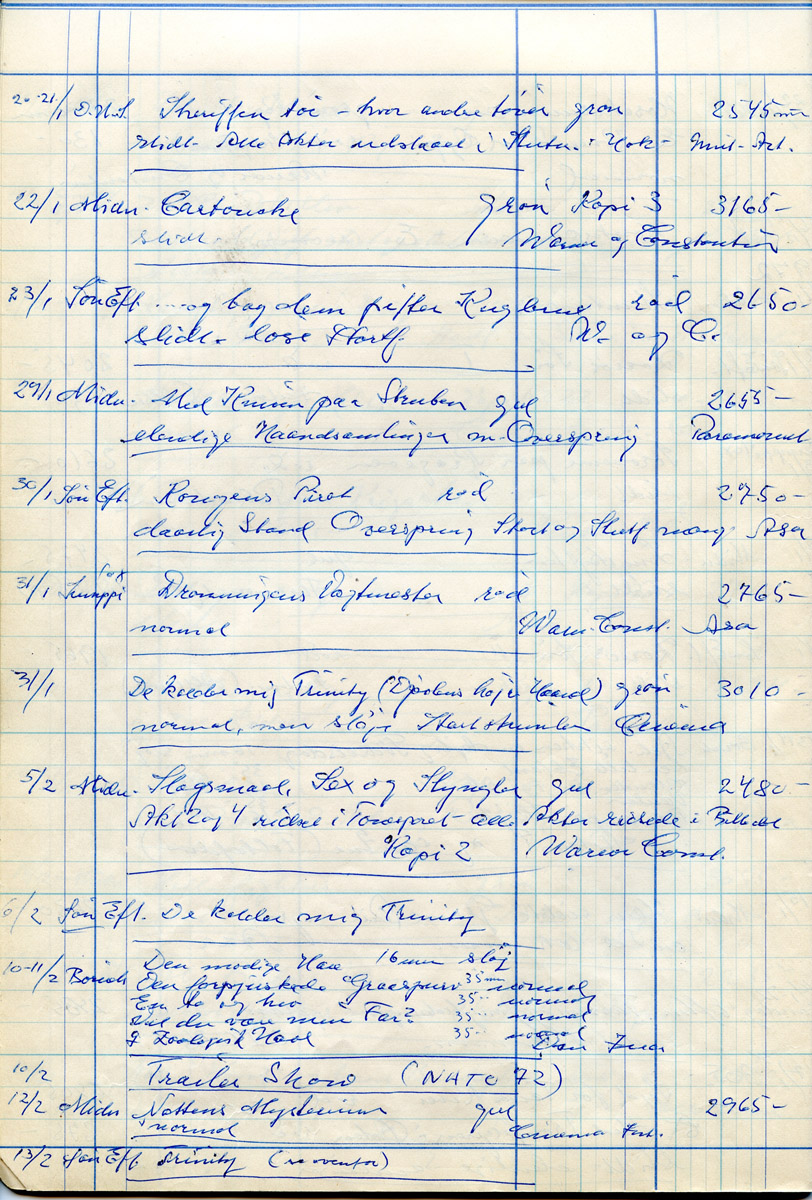 20-21/1 D.N.S. Sheriffen tøi - hvor andre tøver grøn 2545 m
slidt - Alle Akter udslaaet i - Unit-Art.
22/1 Midn. Cartouche grøn Kopi 3 3165-
slidt. Warner og Constantin
23/1 Søn Eft ... og bag dem pifter Kuglerne rød 2650-
slidt - løse Startf. W- og C-
29/1 Midn. Med Kniven paa Struben gul 2655-
elendige Haandsamlinger m- Overspring Paramount
30/1 Søn Eft. Kongens Pirat rød 2750-
daarlig Stand Overspring Start og Slutf mang Asa
31/1 Dronningens Vejtmester rød 2765-
normal Warn-Const. Asa
31/1 De kalder mig Trinity (Djævelens højre Haand) grøn 3010-
normal, men sløje Startstrimler Cinema
5/2 Midn. Slagsmaal, Sex og Slyngler gul 2480-
Akt 2 og 4 ridset i Tonesporet - alle Akter ridsede i Billedet
Kopi 2 Warner Const.
6/2 Søn Eft. De kalder mig Trinity
10-11/2 Den modige Hare 16 mm sløj
Een forpjusket Graaspurv 35 mm normal
En to og tre 35 " normal
Vil du være min Far? 35 " normal
I Zoologisk Have 35 " normal
10/2 Trailer Show (NATO 72)
12/2 Midn Nattens Mysterium gul 2965-
normal Cinema
13/2 Søn Eft Trinity (se ovenfor)